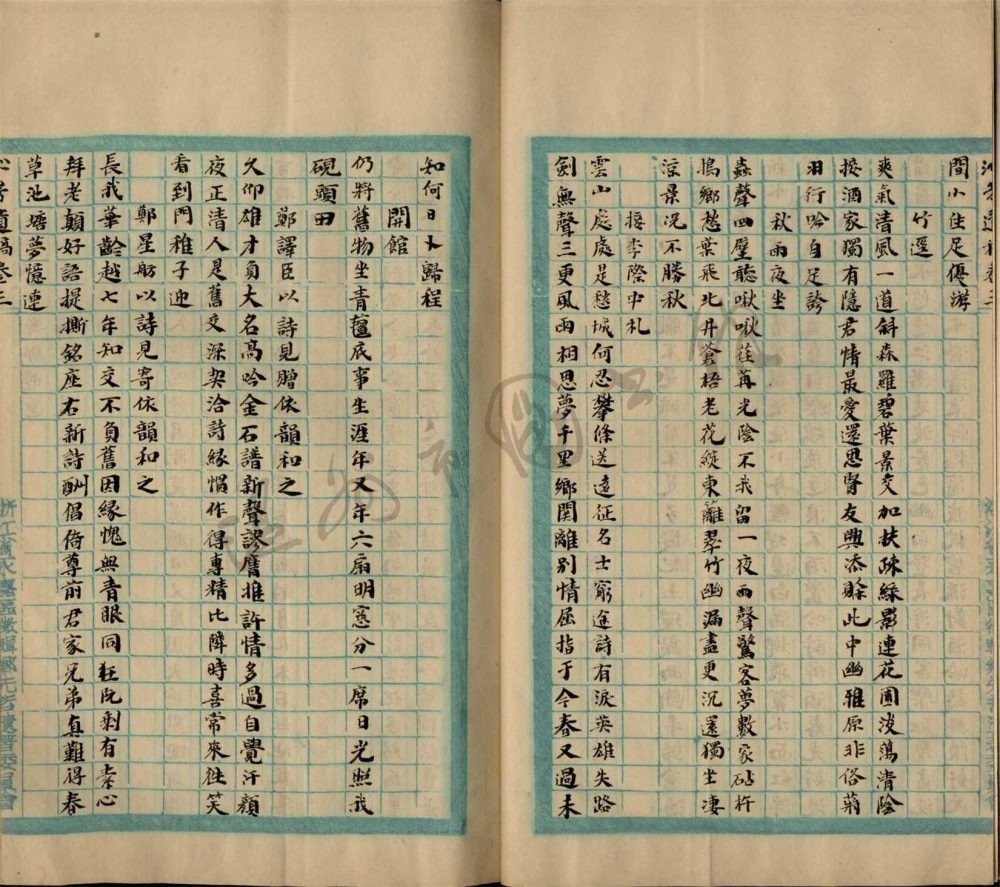 間小住足優游
竹邏
爽氣清風一道斜森羅碧葉景交加扶疎綠影連花圃淡蕩清陰
接酒家獨有隱君情最愛還思賢友興添賒此中幽雅原非俗菊
羽行吟自足誇
秋雨夜坐
蟲聲四壁聽啾啾荏苒光陰不我留一夜雨聲驚客夢數家砧杵
搗鄉愁葉飛北井蒼梧老花綻東籬翠竹幽漏盡更沉還獨坐凄
涼景况不勝秋
接李際中札
雲山處處是愁城何忍攀條送遠征名士窮途詩有淚英雄失路
劍無聲三更風雨相思夢千里鄉關離別情屈指于今春又過未
知何日卜歸程
開館
仍將舊物坐青氊底事生涯年又年六扇明窓分一席日光照我
硯頭田
鄭譯臣以詩見贈依韻和之
久仰雄才負大名高吟金石譜新聲謬膺推許情多過自覺汗顏
夜正清人是舊交深契洽詩緣慣作得專精比隣時喜常來往笑
看到門稚子迎
鄭星舫以詩見寄依韻和之
長我華齡越七年知交不負舊因緣愧無青眼同狂阮剩有素心
拜老顛好語提撕銘座右新詩酬倡倚尊前君家兄弟真難得春
草池塘夢憶連